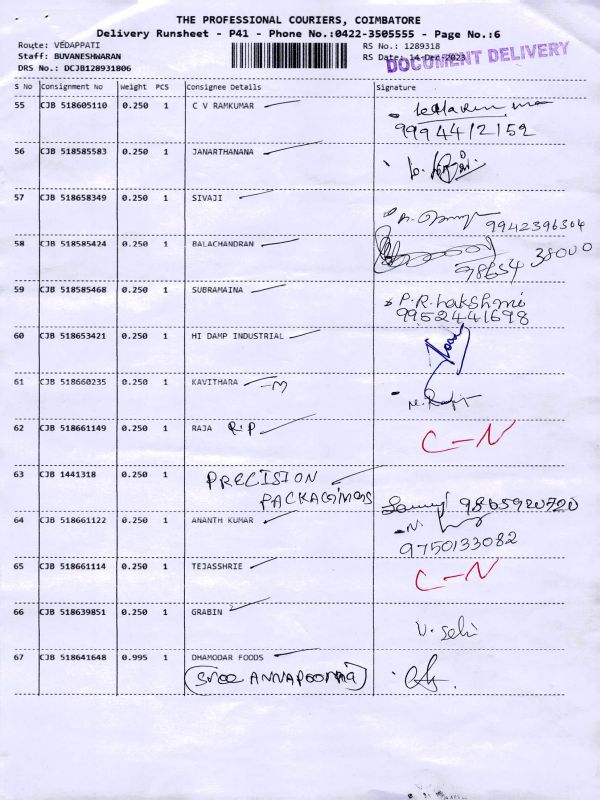 THE PROFESSIONAL COURIERS, COIMBATORE
Delivery Runsheet - P41 - Phone No.:0422-3505555 - Page No.:6
Route: VEDAPPATI
RS No.: 1289318
Staff: BUVANESHWARAN
RS Date: 14-Dec-2023
DOCUMENT DELIVERY
DRS No.: DCJB128931806
S No Consignment No Weight PCS Consignee Details Signature
55 CJB 518605110 0.250 1 C V RAMKUMAR
9994412152
56 CJB 518585583 0.250 1 JANARTHANANA
57 CJB 518658349 0.250 1 SIVAJI
9942396304
58 CJB 518585424 0.250 1 BALACHANDRAN
98654 38000
59 CJB 518585468 0.250 1 SUBRAMAINA P.R. Lakshmi
9952441698
60 CJB 518653421 0.250 1 HI DAMP INDUSTRIAL
61 CJB 518660235 0.250 1 KAVITHARA -M
62 CJB 518661149 0.250 1 RAJA R.P C-N
63 CJB 1441318 0.250 1 PRECISION
PACKAGINGS 9865920720
64 CJB 518661122 0.250 1 ANANTH KUMAR
9750133082
65 CJB 518661114 0.250 1 TEJASSHRIE C-N
66 CJB 518639851 0.250 1 GRABIN
V. Selvi
67 CJB 518641648 0.995 1 DHAMODAR FOODS
Sree ANNAPOORNA